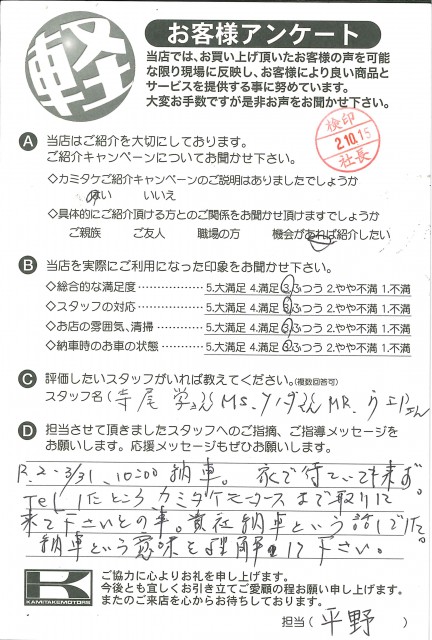 軽
お客様アンケート
当店では、お買い上げ頂いたお客様の声を可能
な限り現場に反映し、お客様により良い商品と
サービスを提供する事に努めています。
大変お手数ですが是非お声をお聞かせ下さい。
検印
2.10.15
社長
A 当店はご紹介を大切にしております。
ご紹介キャンペーンについてお聞かせ下さい。
◇カミタケご紹介キャンペーンのご説明はありましたでしょうか
はい いいえ
◇具体的にご紹介頂ける方とのご関係をお聞かせ頂けますでしょうか
ご親族 ご友人 職場の方 機会があれば紹介したい
B 当店を実際にご利用になった印象をお聞かせ下さい。
◇総合的な満足度・・・・・・・・・・・ 5.大満足 4.満足 3.ふつう 2.やや不満 1.不満
◇スタッフの対応・・・・・・・・・・・ 5.大満足 4.満足 3.ふつう 2.やや不満 1.不満
◇お店の雰囲気、清掃・・・・・・・ 5.大満足 4.満足 3.ふつう 2.やや不満 1.不満
◇納車時のお車の状態・・・・・・・ 5.大満足 4.満足 3.ふつう 2.やや不満 1.不満
C 評価したいスタッフがいれば教えてください。(複数回答可)
スタッフ名(寺尾 学さん MS. さん MR. さん
D 担当させて頂きましたスタッフへのご指摘、ご指導メッセージを
お願いします。応援メッセージもぜひお願いします。
R.2-3/31 10:00 納車。 家で待っていても来ず。
Telしたところカミタケモータースまで取りに
来て下さいとの事。貴社納車という話しでした。
納車という意味を理解して下さい。
K
KAMITAKEMOTORS
ご協力に心よりお礼を申し上げます。
今後とも宜しくお引き立てご愛顧の程お願い申し上げます。
またのご来店を心からお待ちしております。
担当( 平野 )